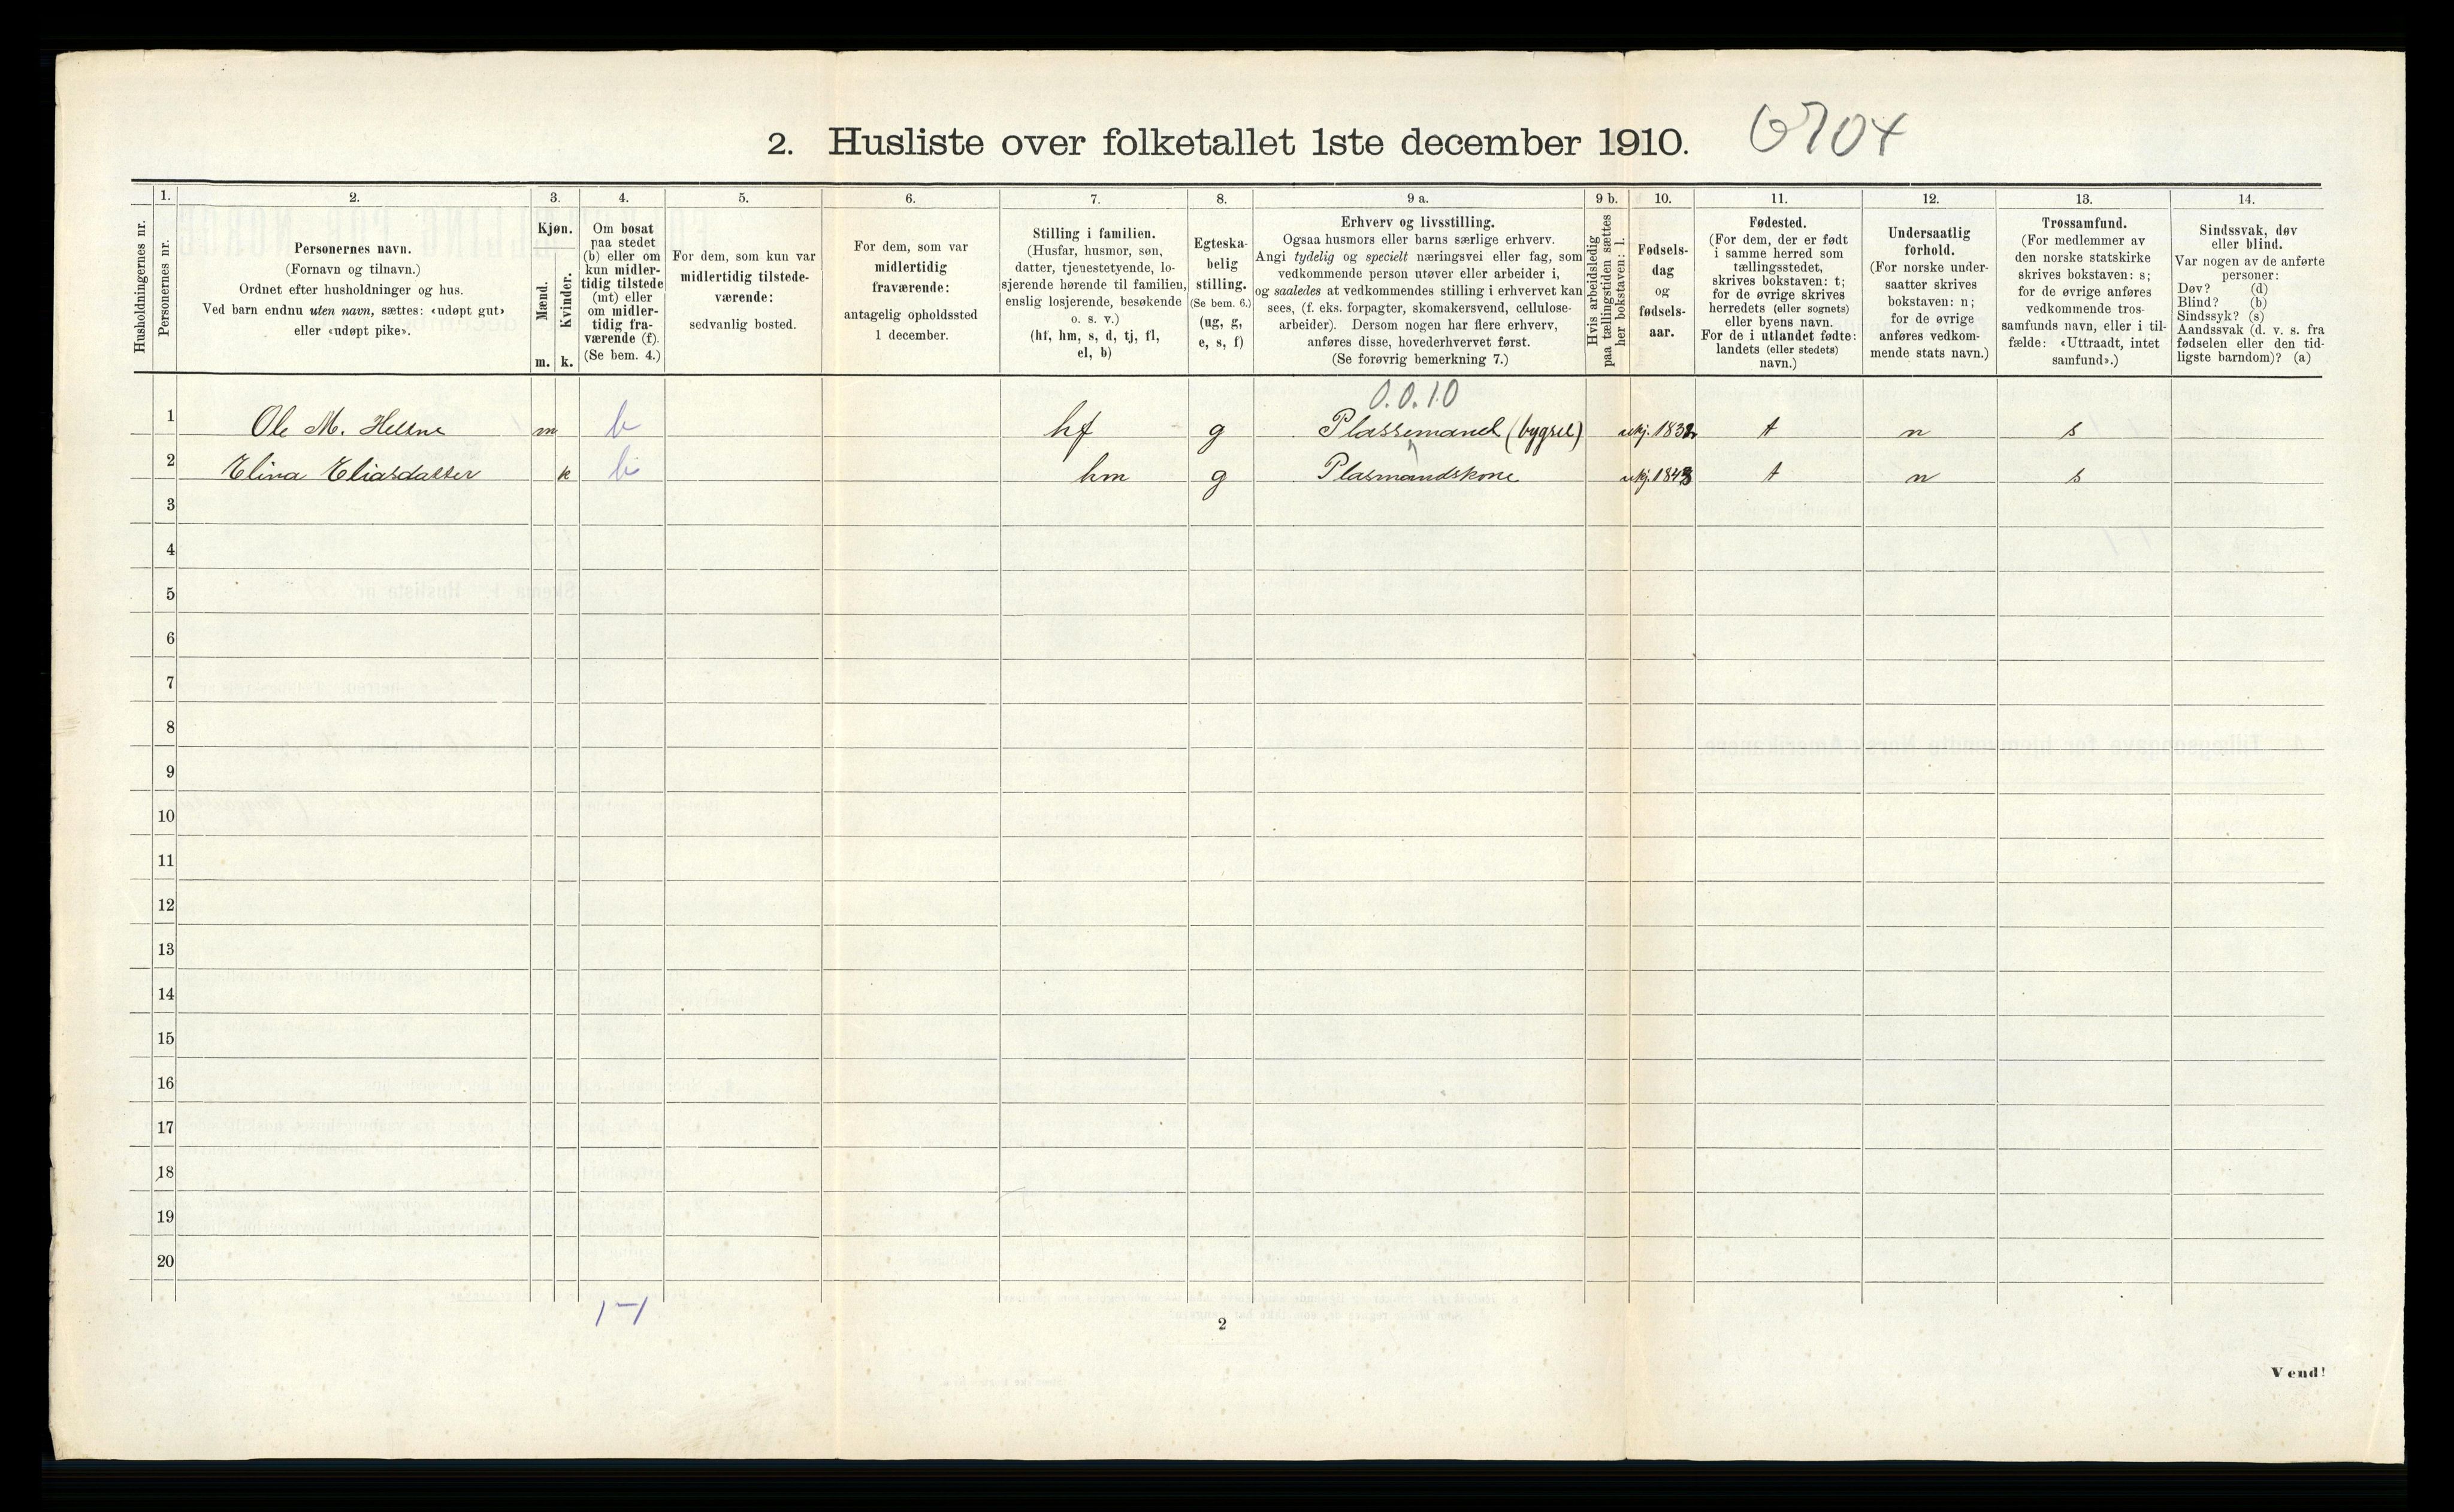 2. Husliste over folketallet 1ste december 1910.
6704
Husholdningernes nr.
1.
Personernes nr.
2.
Personernes navn.
(Fornavn og tilnavn.)
Ordnet efter husholdninger og hus.
Ved barn endnu uten navn, sættes: «udøpt gut»
eller «udøpt pike».
3.
Kjøn.
Mænd.
Kvinder.
m. k.
4.
Om bosat
paa stedet
(b) eller om
kun midler-
tidig tilstede
(mt) eller
om midler-
tidig fra-
værende (f).
(Se bem. 4.)
5.
For dem, som kun var
midlertidig tilstede-
værende:
sedvanlig bosted.
6.
For dem, som var
midlertidig
fraværende:
antagelig opholdssted
1 december.
7.
Stilling i familien.
(Husfar, husmor, søn,
datter, tjenestetyende, lo-
sjerende hørende til familien,
enslig losjerende, besøkende
o. s. v.)
(hf, hm, s, d, tj, fl,
el, b)
8.
Egteska-
belig
stilling.
(Se bem. 6.)
(ug, g,
e, s, f)
9 a.
Erhverv og livsstilling.
Ogsaa husmors eller barns særlige erhverv.
Angi tydelig og specielt næringsvei eller fag, som
vedkommende person utøver eller arbeider i,
og saaledes at vedkommendes stilling i erhvervet kan
sees, (f. eks. forpagter, skomakersvend, cellulose-
arbeider). Dersom nogen har flere erhverv,
anføres disse, hovederhvervet først.
(Se forøvrig bemerkning 7.)
9 b.
Hvis arbeidsledig
paa tællingstiden sættes
her bokstaven: l.
10.
Fødsels-
dag
og
fødsels-
aar.
11.
Fødested.
(For dem, der er født
i samme herred som
tællingsstedet,
skrives bokstaven: t;
for de øvrige skrives
herredets (eller sognets)
eller byens navn.
For de i utlandet fødte:
landets (eller stedets)
navn.)
12.
Undersaatlig
forhold.
(For norske under-
saatter skrives
bokstaven: n;
for de øvrige
anføres vedkom-
mende stats navn.)
13.
Trossamfund.
(For medlemmer av
den norske statskirke
skrives bokstaven: s;
for de øvrige anføres
vedkommende tros-
samfunds navn, eller i til-
fælde: «Uttraadt, intet
samfund».)
14.
Sindssvak, døv
eller blind.
Var nogen av de anførte
personer:
Døv? (d)
Blind? (b)
Sindssyk? (s)
Aandssvak (d. v. s. fra
fødselen eller den tid-
ligste barndom)? (a)
0.0.10
1 Ole M. m b hf g Plassemand (bygsel) ukj. 1832 t n s
2 Elina Eliasdatter k b hm g Plasmandskone ukj. 1843 t n s
3
4
5
6
7
8
9
10
11
12
13
14
15
16
17
18
19
20
1-1
2
Vend!